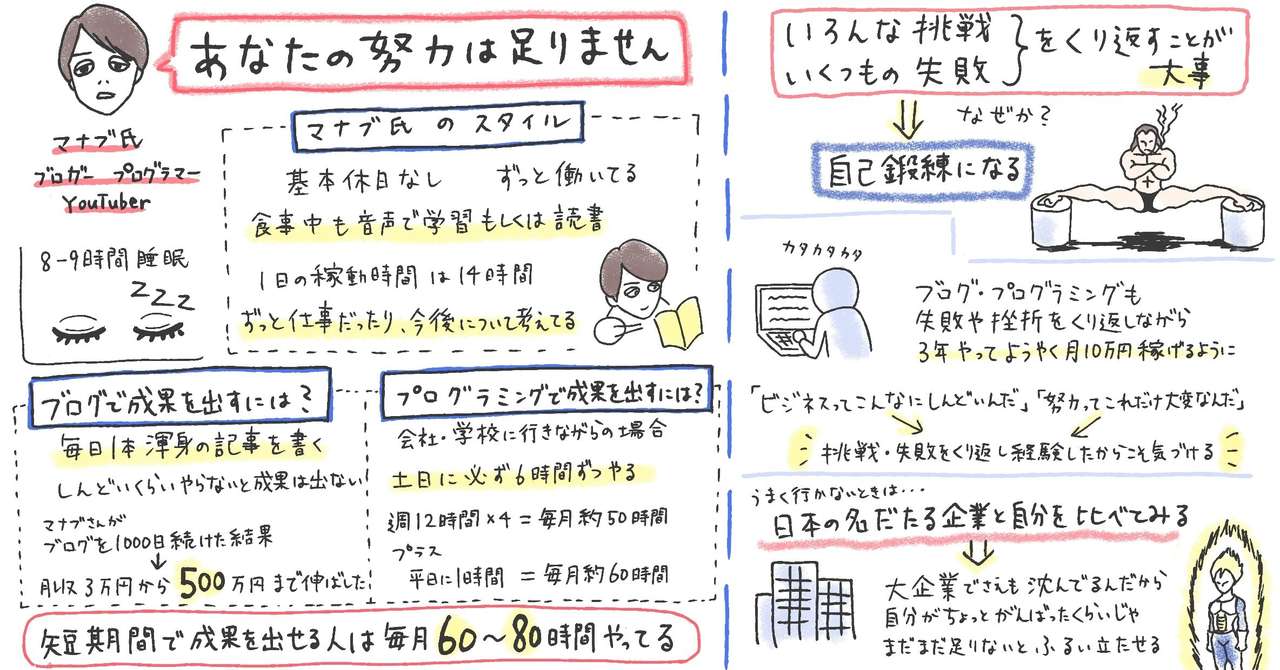 あなたの努力は足りません
マナブ氏
ブロガー プログラマー
YouTuber
8-9時間睡眠
ZZZ
マナブ氏のスタイル
基本休日なし ずっと働いてる
食事中も音声で学習もしくは読書
1日の稼動時間は14時間
ずっと仕事だったり、今後について考えてる
ブログで成果を出すには?
毎日1本渾身の記事を書く
しんどいくらいやらないと成果は出ない
マナブさんが
ブログを1000日続けた結果
月収3万円から500万円まで伸ばした
プログラミングで成果を出すには?
会社・学校に行きながらの場合
土日に必ず6時間ずつやる
週12時間×4=毎月約50時間
プラス
平日に1時間=毎月約60時間
短期間で成果を出せる人は毎月60〜80時間やってる
いろんな挑戦
いくつもの失敗
をくり返すことが
大事
なぜか?
自己鍛練になる
カタカタカタ
ブログ・プログラミングも
失敗や挫折をくり返しながら
3年やってようやく月10万円稼げるように
「ビジネスってこんなにしんどいんだ」「努力ってこれだけ大変なんだ」
挑戦・失敗をくり返し経験したからこそ気づける
うまく行かないときは…
日本の名だたる企業と自分を比べてみる
大企業でさえも沈んでるんだから
自分がちょっとがんばったくらいじゃ
まだまだ足りないとふるい立たせる